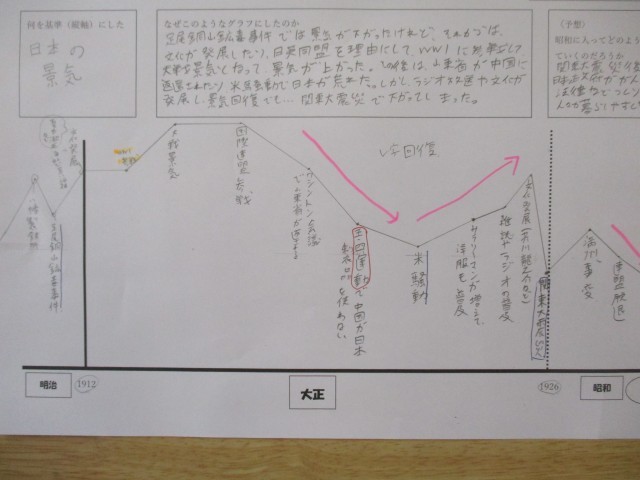 何を基準(縦軸)にした
日本の
景気
なぜこのようなグラフにしたのか
足尾銅山鉱毒事件では景気が下がったけれど、それからは、
文化が発展したり、日英同盟を理由にして、WW1に参戦して
大戦景気となって景気が上がった。この後は、山東省が中国に
返還されたり米騒動で日本が荒れた。しかし、ラジオ放送や文化が
発展し、景気回復でも…関東大震災で下がってしまった。
〈予想〉
昭和に入ってどのよう
ていくのだろうか
関東大震災後
法律などでつくり
人々が暮らしやすい
V字回復
足尾銅山鉱毒事件
大戦景気
国際連盟参戦
ワシントン会議
で山東省が返る
五・四運動で中国が日本
製品を使わない
米騒動
サラリーマンが増えて、
洋服も普及
雑誌やラジオの普及
関東大震災
満州事変
連盟脱退
明治
1912
大正
1926
昭和